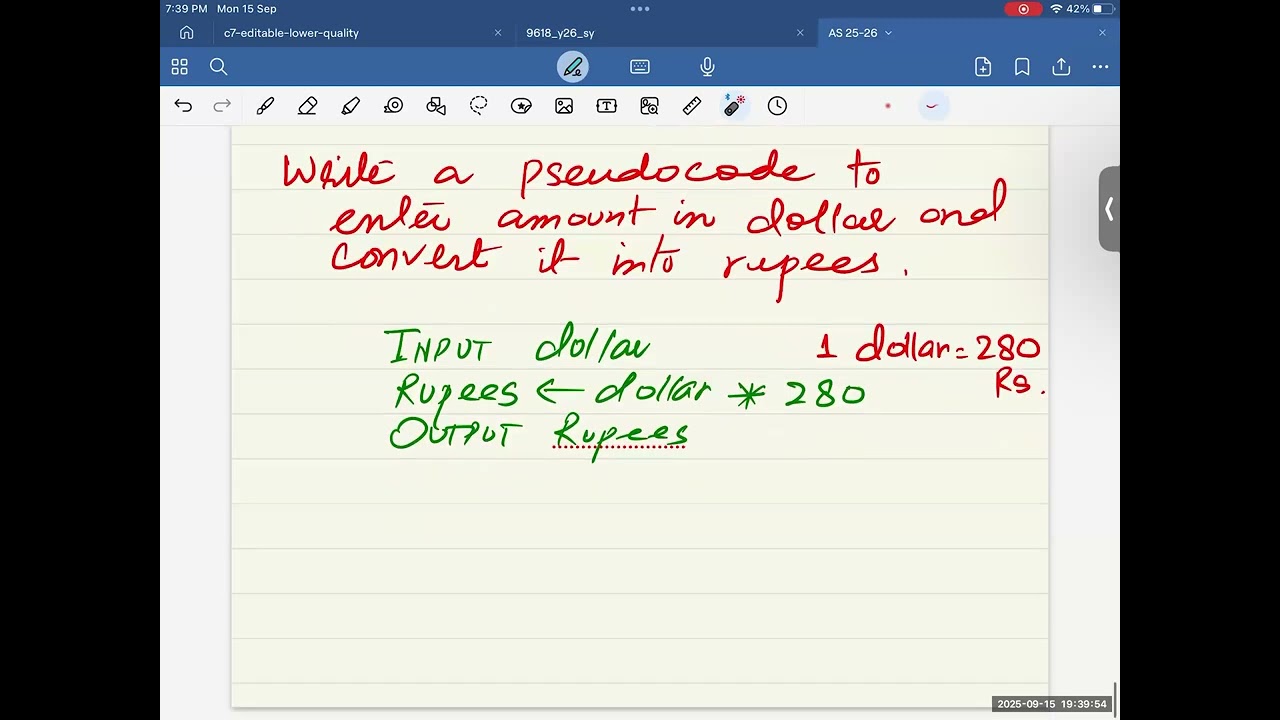 7:39 PM Mon 15 Sep
42%
c7-editable-lower-quality
9618_y26_sy
AS 25-26
Write a pseudocode to
enter amount in dollar and
convert it into rupees.
INPUT dollar
1 dollar = 280
Rs.
Rupees ← dollar * 280
OUTPUT Rupees
2025-09-15 19:39:54